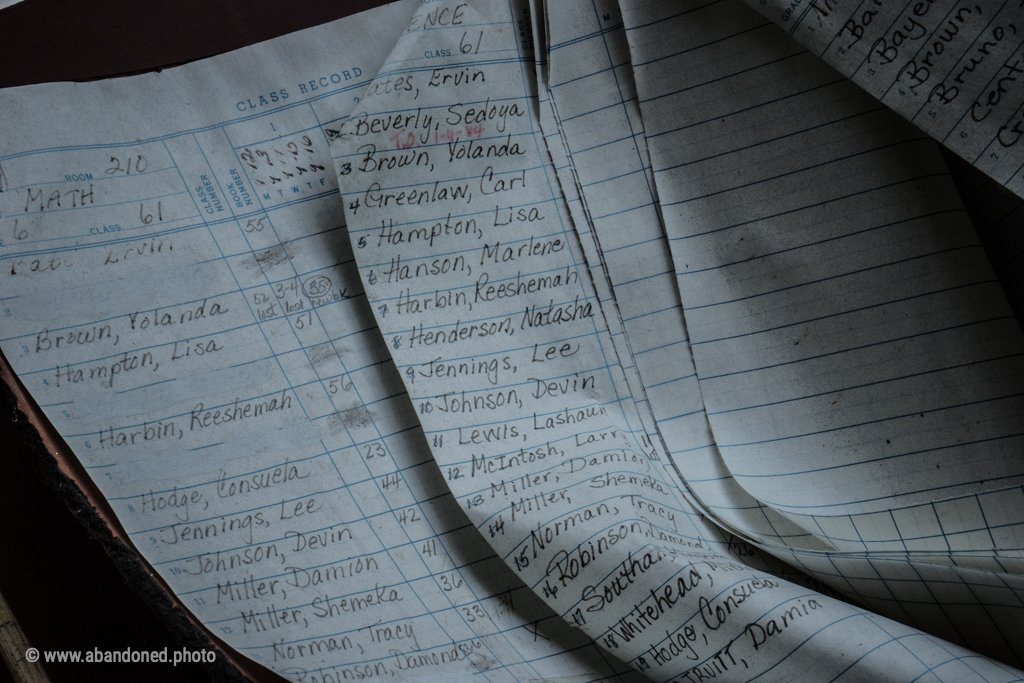 CLASS RECORD
ROOM 210
MATH
6 CLASS 61
CLASS NUMBER
BOOK NUMBER
1
M T W T F
Ervin 55
3 Brown, Yolanda 52 lost 3-4 lost 85
Hampton, Lisa 51
Harbin, Reeshemah 56
Hodge, Consuela 23
Jennings, Lee 44
10 Johnson, Devin 42
11 Miller, Damion 41
12 Miller, Shemeka 36
Norman, Tracy 33
Robinson, Damond 36
ENCE
CLASS 61
ates, Ervin
Beverly, Sedoya
3 Brown, Yolanda
4 Greenlaw, Carl
5 Hampton, Lisa
6 Hanson, Marlene
7 Harbin, Reeshemah
8 Henderson, Natasha
9 Jennings, Lee
10 Johnson, Devin
11 Lewis, Lashaun
12 McIntosh, Larr
13 Miller, Damion
14 Miller, Shemeka
15 Norman, Tracy
16 Robinson, Damond
17 Southa
18 Whitehead,
19 Hodge, Consuela
TRUITT, Damia
Bar
3 Bayer
4 Brown,
5 Bruno,
6 Cent
7
© www.abandoned.photo